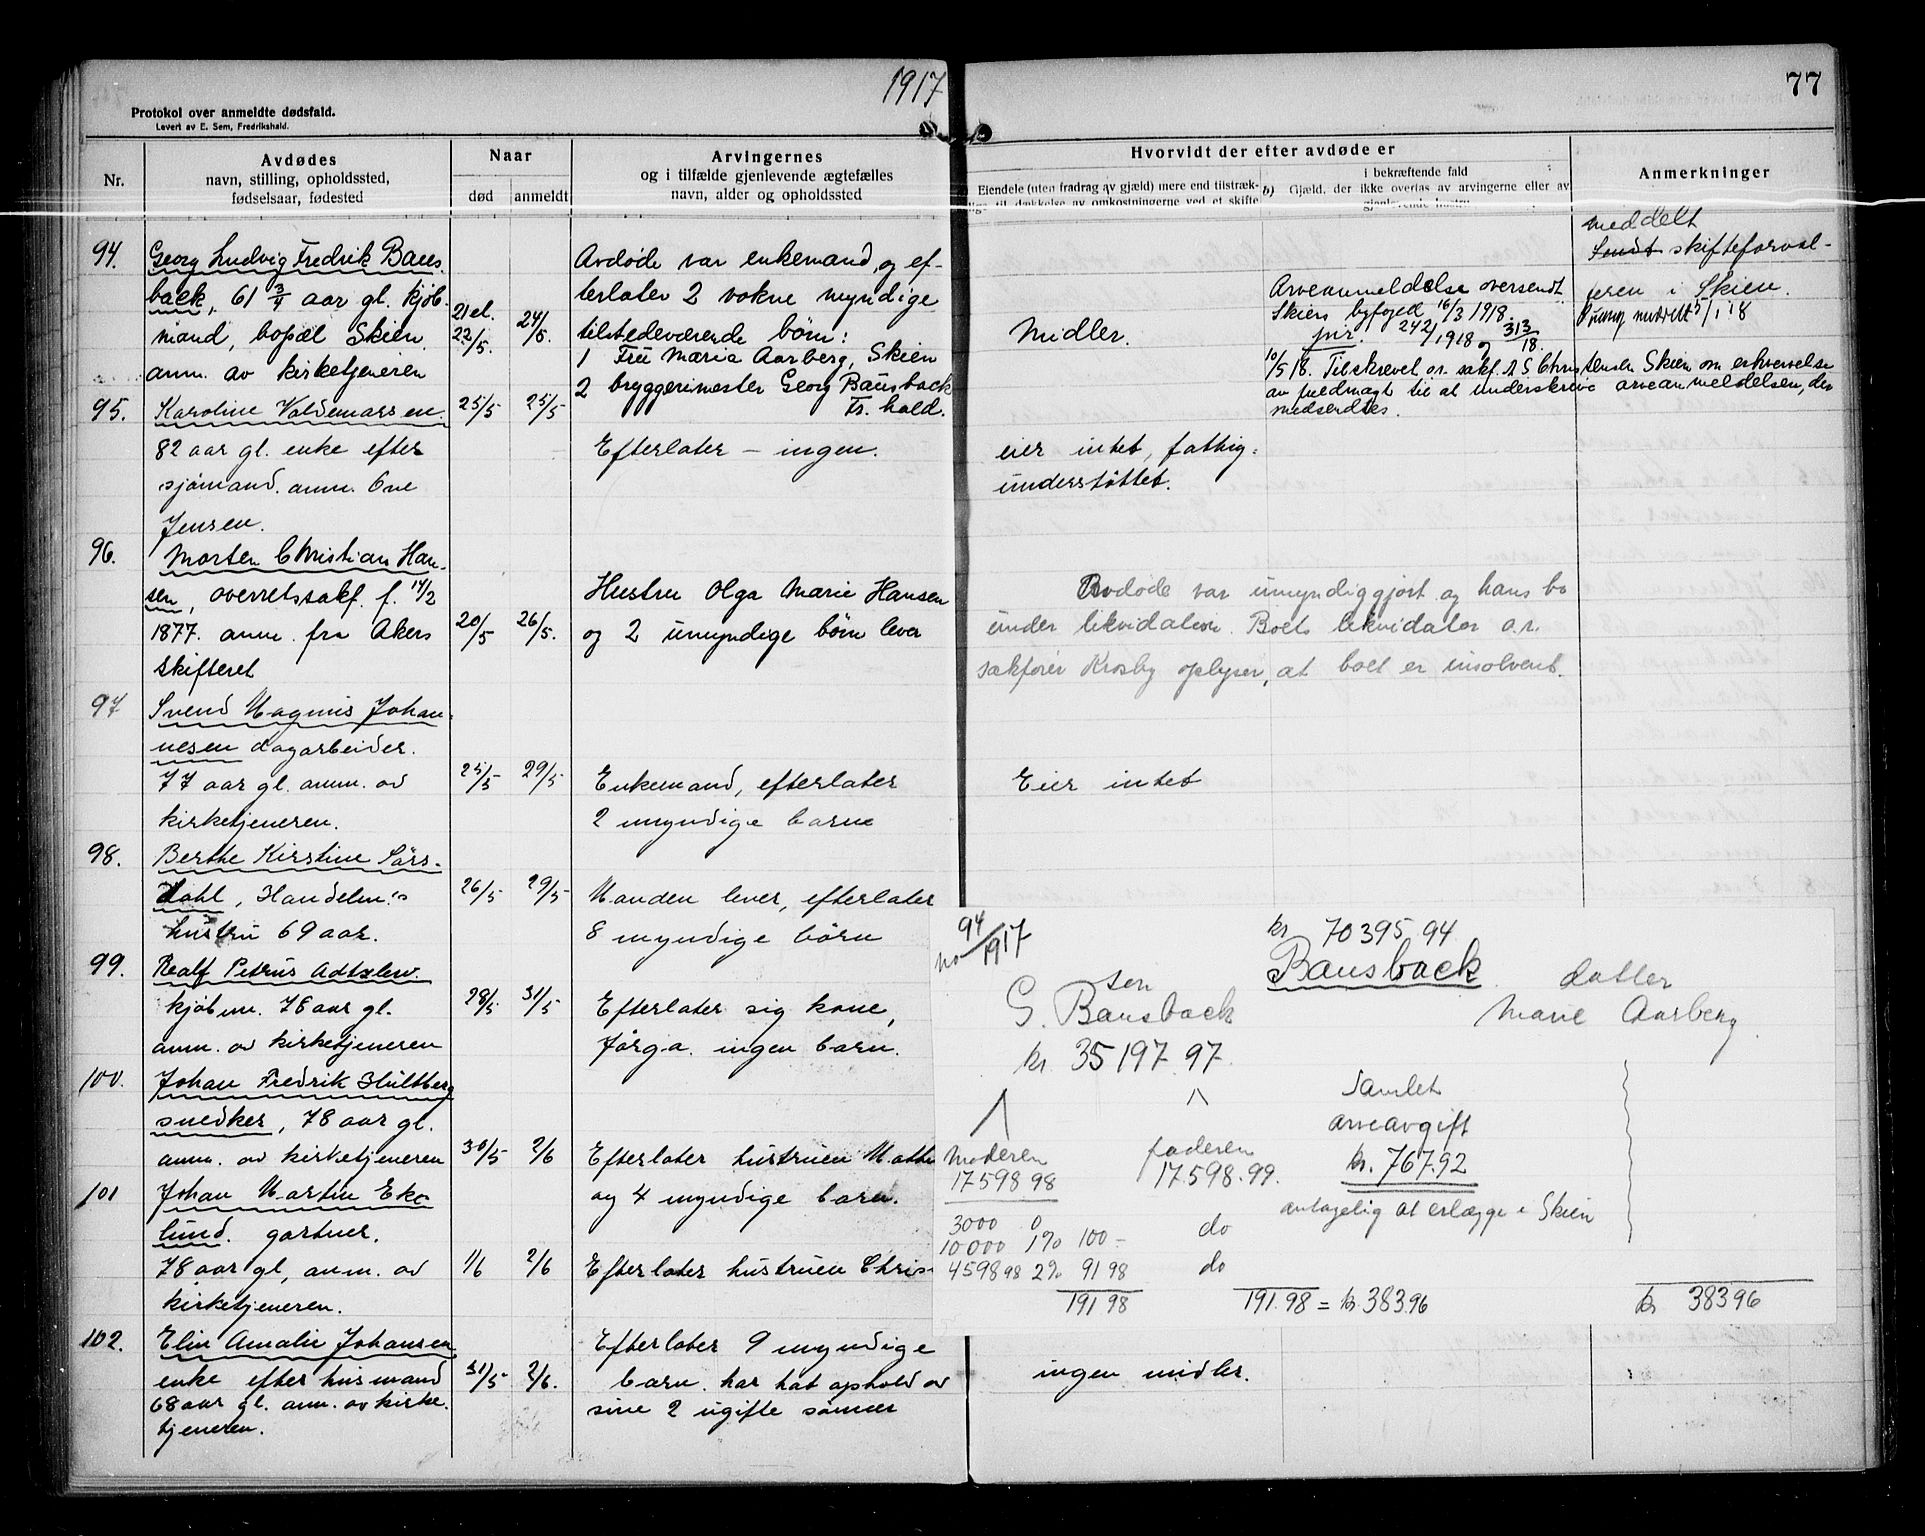 1917
77
Protokol over anmeldte dødsfald.
Levert av E. Sem, Fredrikshald.
Nr.
Avdødes
navn, stilling, opholdssted,
fødselsaar, fødested
Naar
død
anmeldt
Arvingernes
og i tilfælde gjenlevende ægtefælles
navn, alder og opholdssted
Hvorvidt der efter avdøde er
Eiendele (uten fradrag av gjæld) mere end tilstræk-
til dækkelse av omkostningerne ved et skifte
i bekræftende fald
b) Gjæld, der ikke overtas av arvingerne eller av
gjenlevende hustru
Anmerkninger
94.
Georg Ludvig Fredrik Baus-
back, 61 3/4 aar gl. kjøb-
mand, bopæl Skien
anm. av kirketjeneren
21 el.
22/5.
24/5.
Avdøde var enkemand og ef-
terlater 2 voksne myndige
tilstedeværende børn:
1 Fru Maria Aarberg, Skien
2 bryggerimester Georg Bausback
Fr. hald.
Midler.
Arveanmeldelse oversendt
Skiens byfoged 16/3 1918.
jnr. 242/1918 og 313/18.
meddelt
Sendt skifteforval-
teren i Skien.
5/1 18
10/5 18. Tilskrevet o.r. sakf. A S Christensen Skien om erhvervelse
av fuldmagt til at underskrive arveanmeldelsen, der
medsendtes.
95.
Karoline Valdemarsen
82 aar gl. enke efter
sjømand. anm. Ove
Jensen.
25/5
25/5
Efterlater – ingen.
eier intet, fattig-
understøttet.
96.
Morten Christian Han-
sen, overretssakf. f. 14/2
1877. anm. fra Akers
skifteret
20/5
26/5.
Hustru Olga Marie Hansen
og 2 umyndige børn lever
Avdøde var umyndiggjort og hans bo
under likvidation. Boets likvidator o.r.
sakfører Krosby oplyser, at boet er insolvent.
97
Svend Magnus Johan-
nesen dagarbeider.
77 aar gl. anm. av
kirketjeneren.
25/5
29/5
Enkemand, efterlater
2 myndige barn
Eier intet
98.
Berthe Kirstine Sørs-
dahl, Handelsm.'s
hustru 69 aar.
26/5
29/5
Manden lever, efterlater
8 myndige børn
99.
Realf Petrus
kjøbm. 76 aar gl.
anm. av kirketjeneren
28/5
31/5
Efterlater sig kone,
ingen barn.
100.
Johan Fredrik Hultberg
snedker, 78 aar gl.
anm. av kirketjeneren
30/5
2/6
Efterlater hustruen Math
og 4 myndige barn.
101
Johan Martin Eke
lund. gartner.
78 aar gl, anm. av
kirketjeneren.
1/6
2/6
Efterlater hustruen Chris-
102.
Elin Amalie Johansen
enke efter husmand
68 aar gl. anm. av kirke-
tjeneren.
31/5
2/6.
Efterlater 9 myndige
barn. har hat ophold av
sine 2 ugifte sønner
ingen midler.
no 94/1917
kr 70395 94
Bausback
søn
G. Bausback
kr 35197 97.
datter
Marie Aarberg
Moderen
17598 98
faderen
17.598.99.
Samlet
arveavgift
kr. 767.92
antagelig at erlægge i Skien
3000 0
10000 1% 100 -
do
4598 98 2% 91 98
do
191 98
191.98 = kr. 383.96
kr 38396